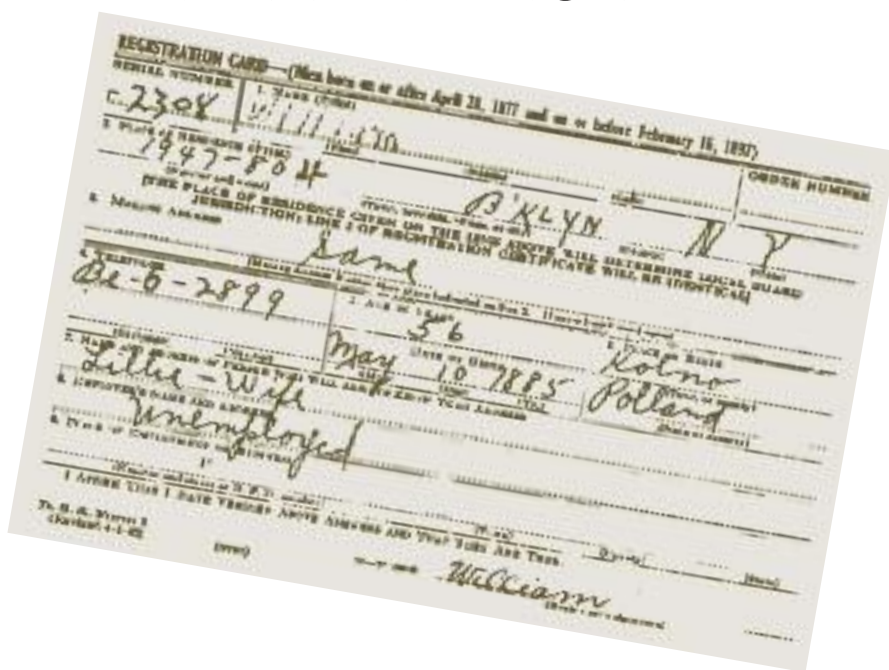 REGISTRATION CARD—(Men born on or after April 28, 1877 and on or before February 16, 1897)
SERIAL NUMBER 1. NAME (Print) ORDER NUMBER
2308 William
2. PLACE OF RESIDENCE (Print)
1947-80 B'KLYN N Y
[THE PLACE OF RESIDENCE GIVEN ON THE LINE ABOVE WILL DETERMINE LOCAL BOARD
JURISDICTION; LINE 2 OF REGISTRATION CERTIFICATE WILL BE IDENTICAL]
3. MAILING ADDRESS
Same
4. TELEPHONE 5. AGE IN YEARS 6. PLACE OF BIRTH
Be-6-2899 56 Kolno
DATE OF BIRTH
May 10 1885 Polland
7. NAME AND ADDRESS OF PERSON WHO WILL ALWAYS KNOW YOUR ADDRESS
Lillie-Wife
8. EMPLOYER'S NAME AND ADDRESS
Unemployed
9. PLACE OF EMPLOYMENT OR BUSINESS
I AFFIRM THAT I HAVE VERIFIED ABOVE ANSWERS AND THAT THEY ARE TRUE.
(Revised 4-1-42) (over)
William